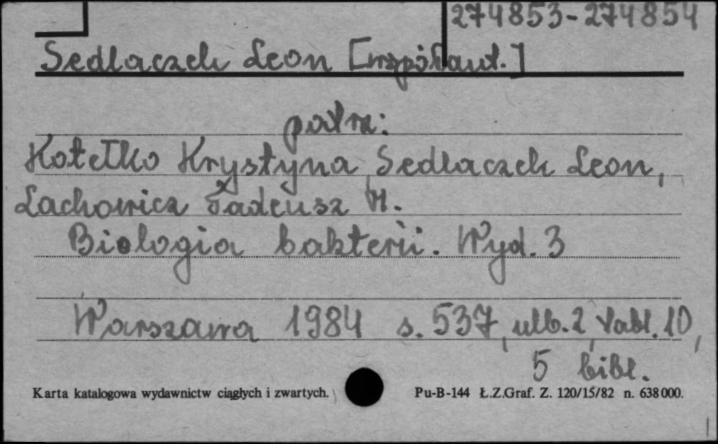 274853-274854
Sedlaczek Leon [współaut.]
patrz:
Kotełko Krystyna, Sedlaczek Leon,
Lachowicz Tadeusz M.
Biologia bakterii. Wyd. 3
Warszawa 1984 s. 537, ulb. 2, tabl. 10,
5 bibl.
Karta katalogowa wydawnictw ciągłych i zwartych.
Pu-B-144 Ł.Z.Graf. Z. 120/15/82 n. 638000.